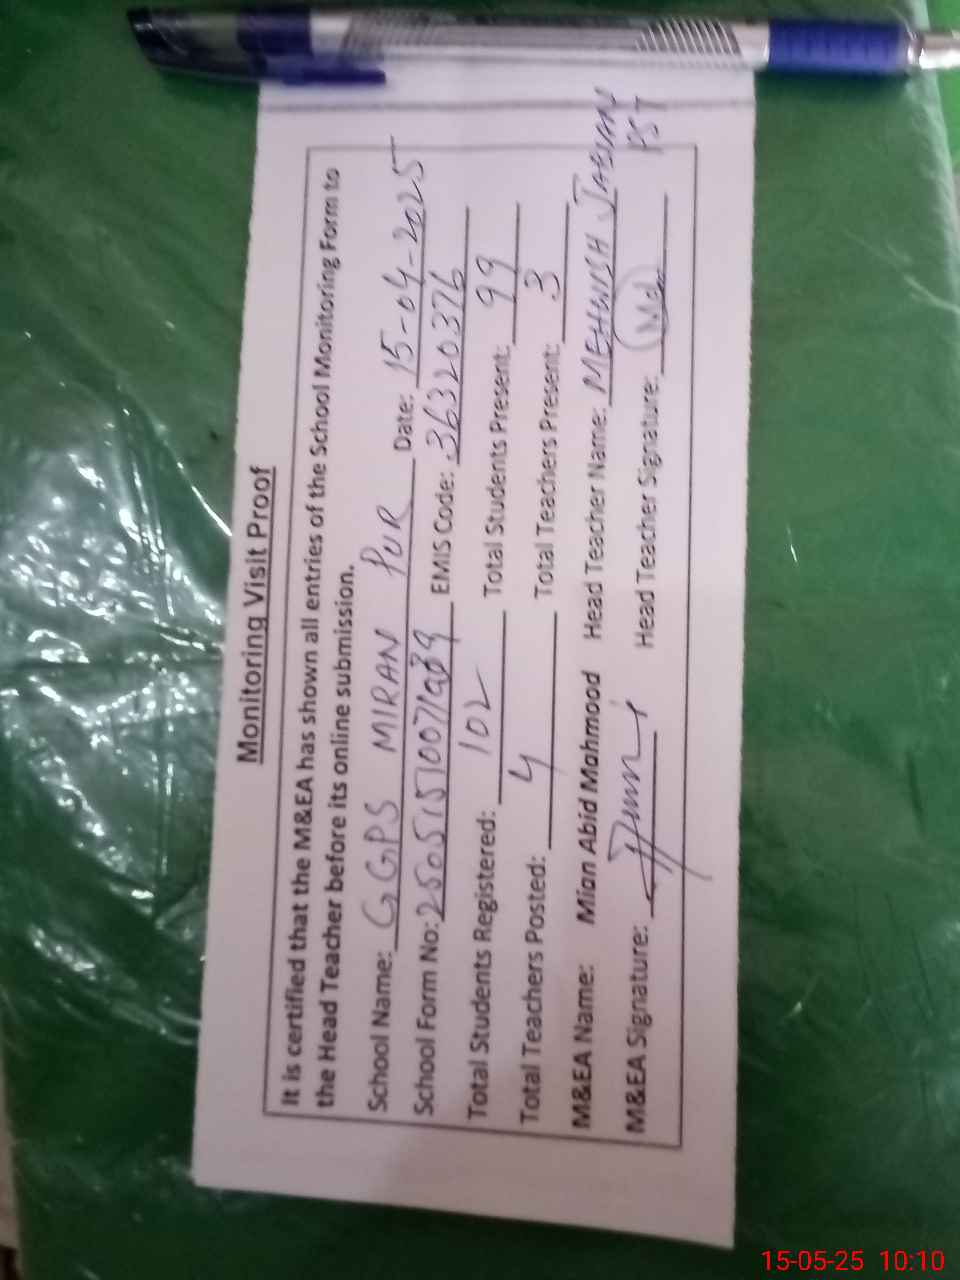 Monitoring Visit Proof
It is certified that the M&EA has shown all entries of the School Monitoring Form to
the Head Teacher before its online submission.
School Name: GGPS MIRAN PUR Date: 15-04-2025
School Form No: EMIS Code: 36320376
Total Students Registered: 102 Total Students Present: 99
Total Teachers Posted: 4 Total Teachers Present: 3
M&EA Name: Mian Abid Mahmood Head Teacher Name: MEHWISH
PST
M&EA Signature: Head Teacher Signature:
15-05-25 10:10